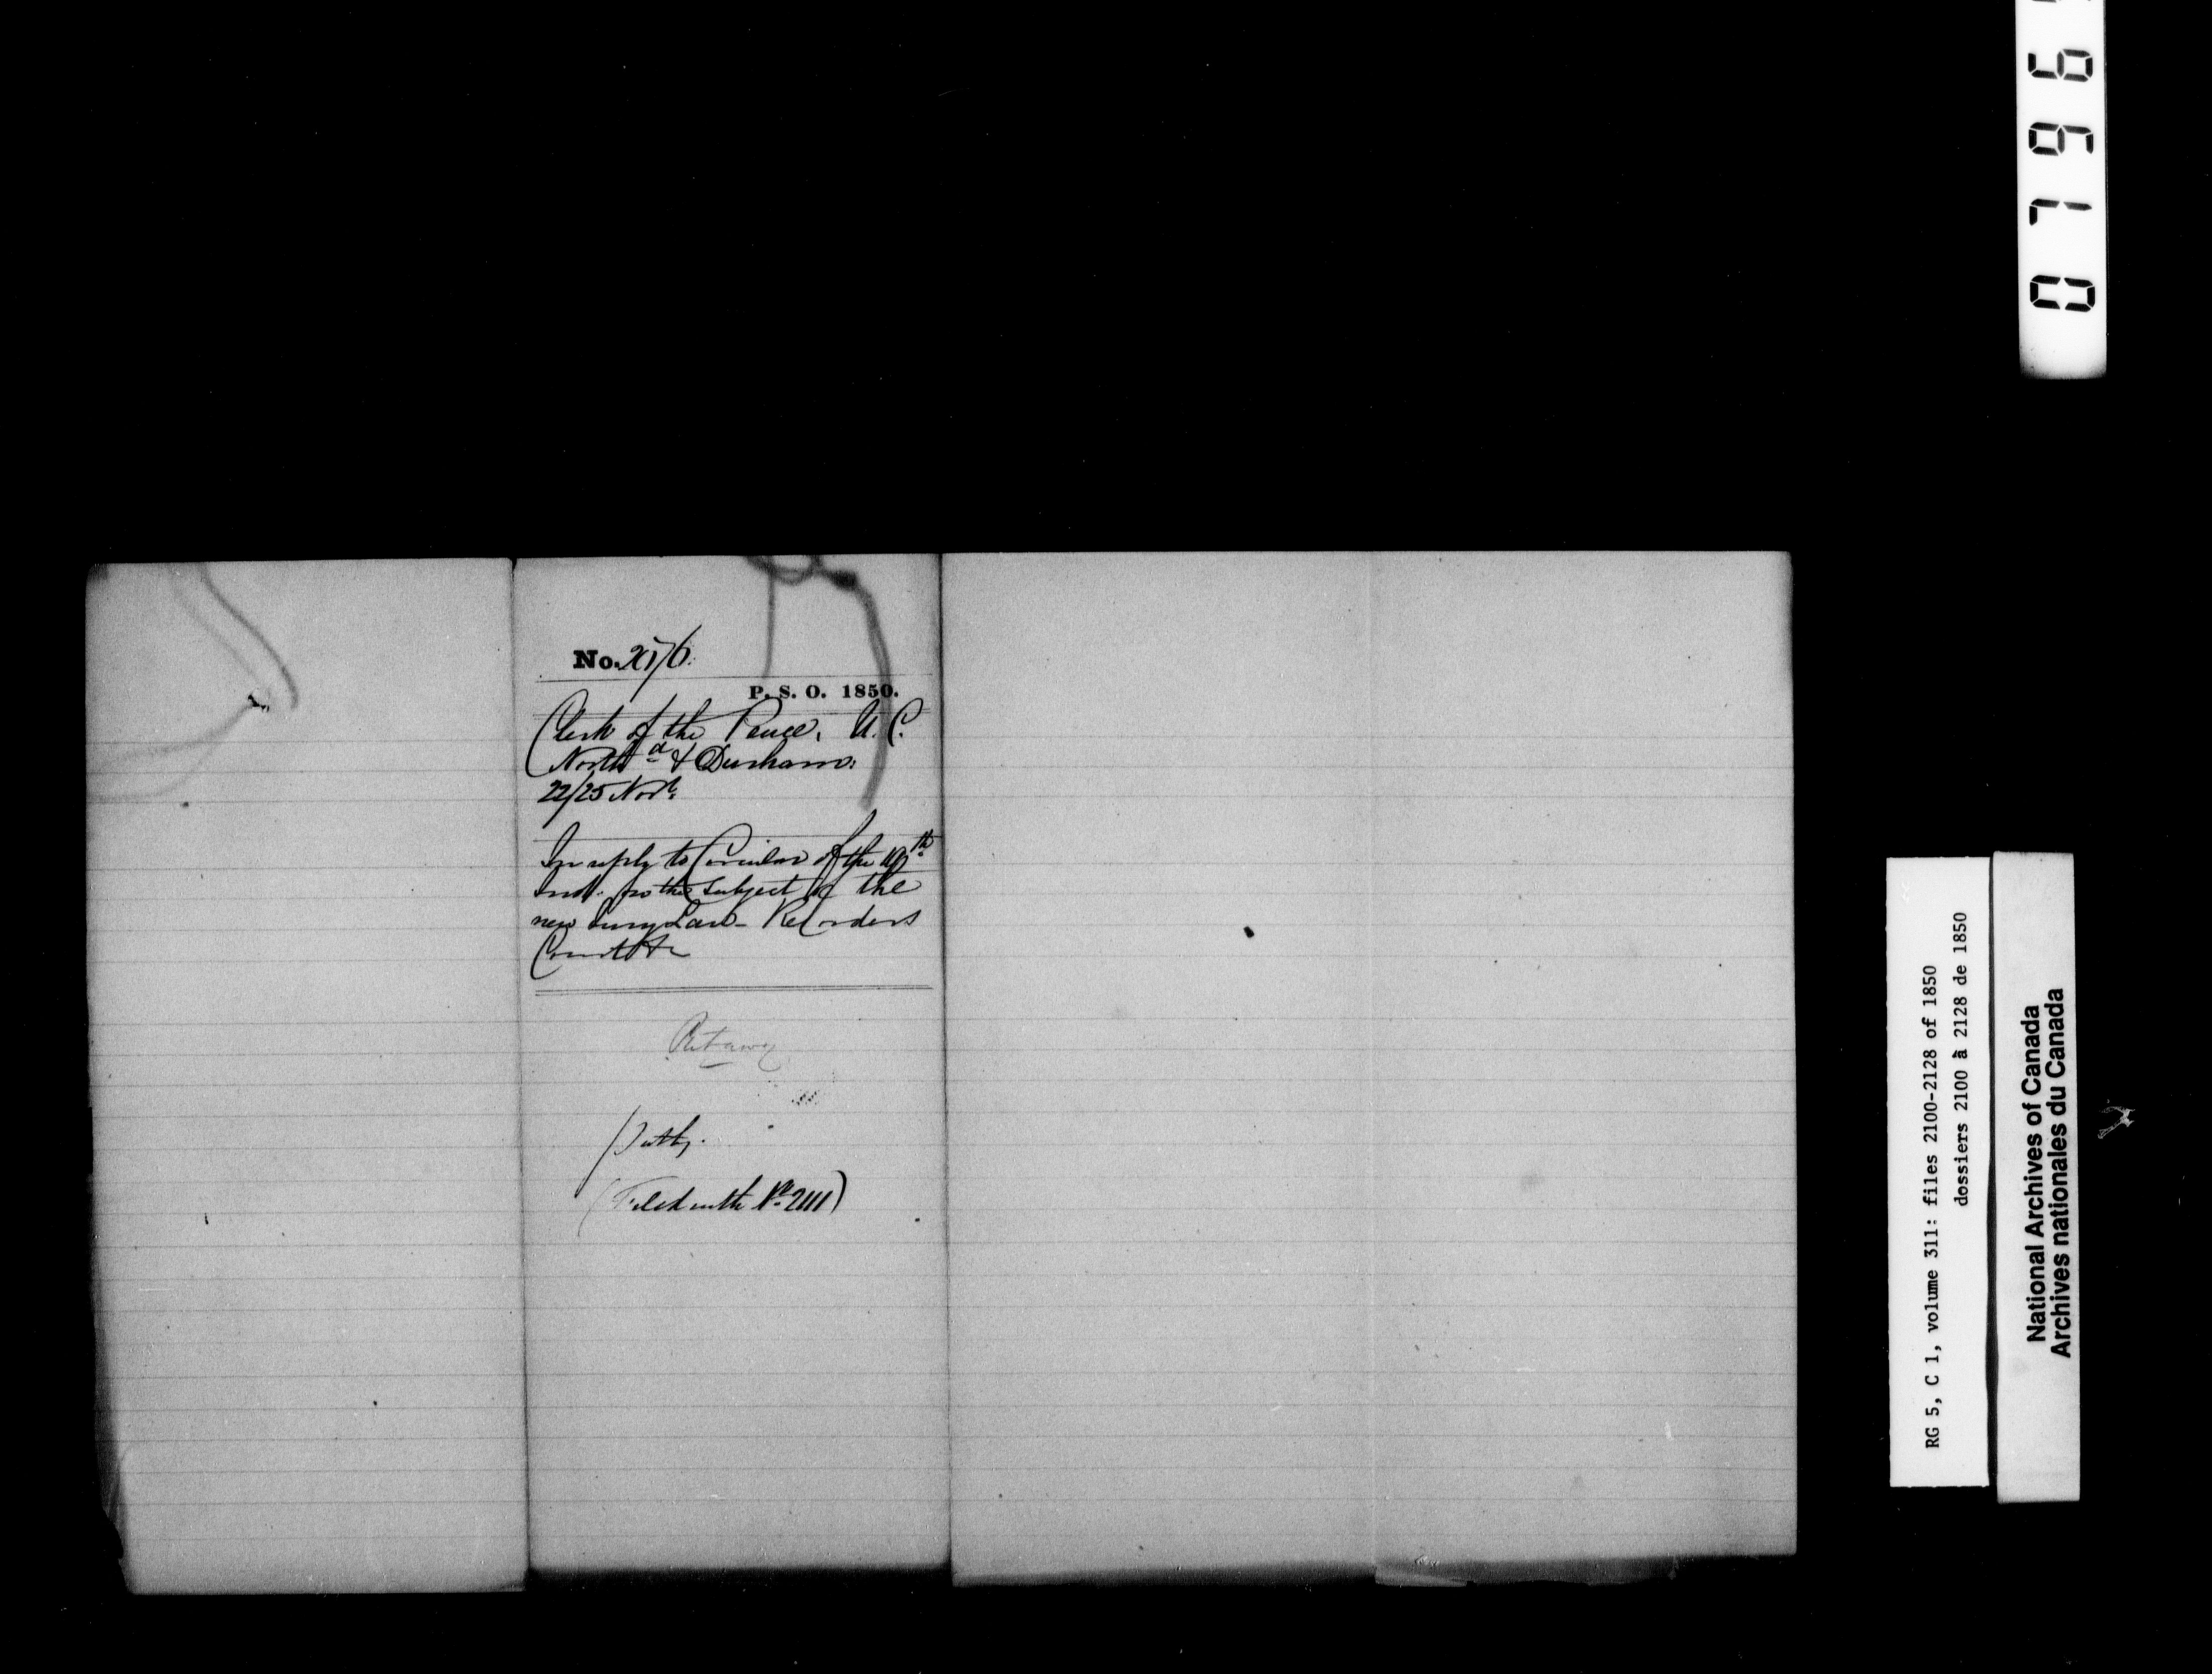 No. 2176.
P. S. O. 1850.
Clerk of the Peace, U. C.
Northd & Durham.
22/25 Novr.
In reply to Circular of the 19th
Inst. on the Subject of the
new Jury Law - Recorders
Court &c
(Filed with No. 2111)
0796
RG 5, C 1, volume 311: files 2100-2128 of 1850
dossiers 2100 à 2128 de 1850
National Archives of Canada
Archives nationales du Canada